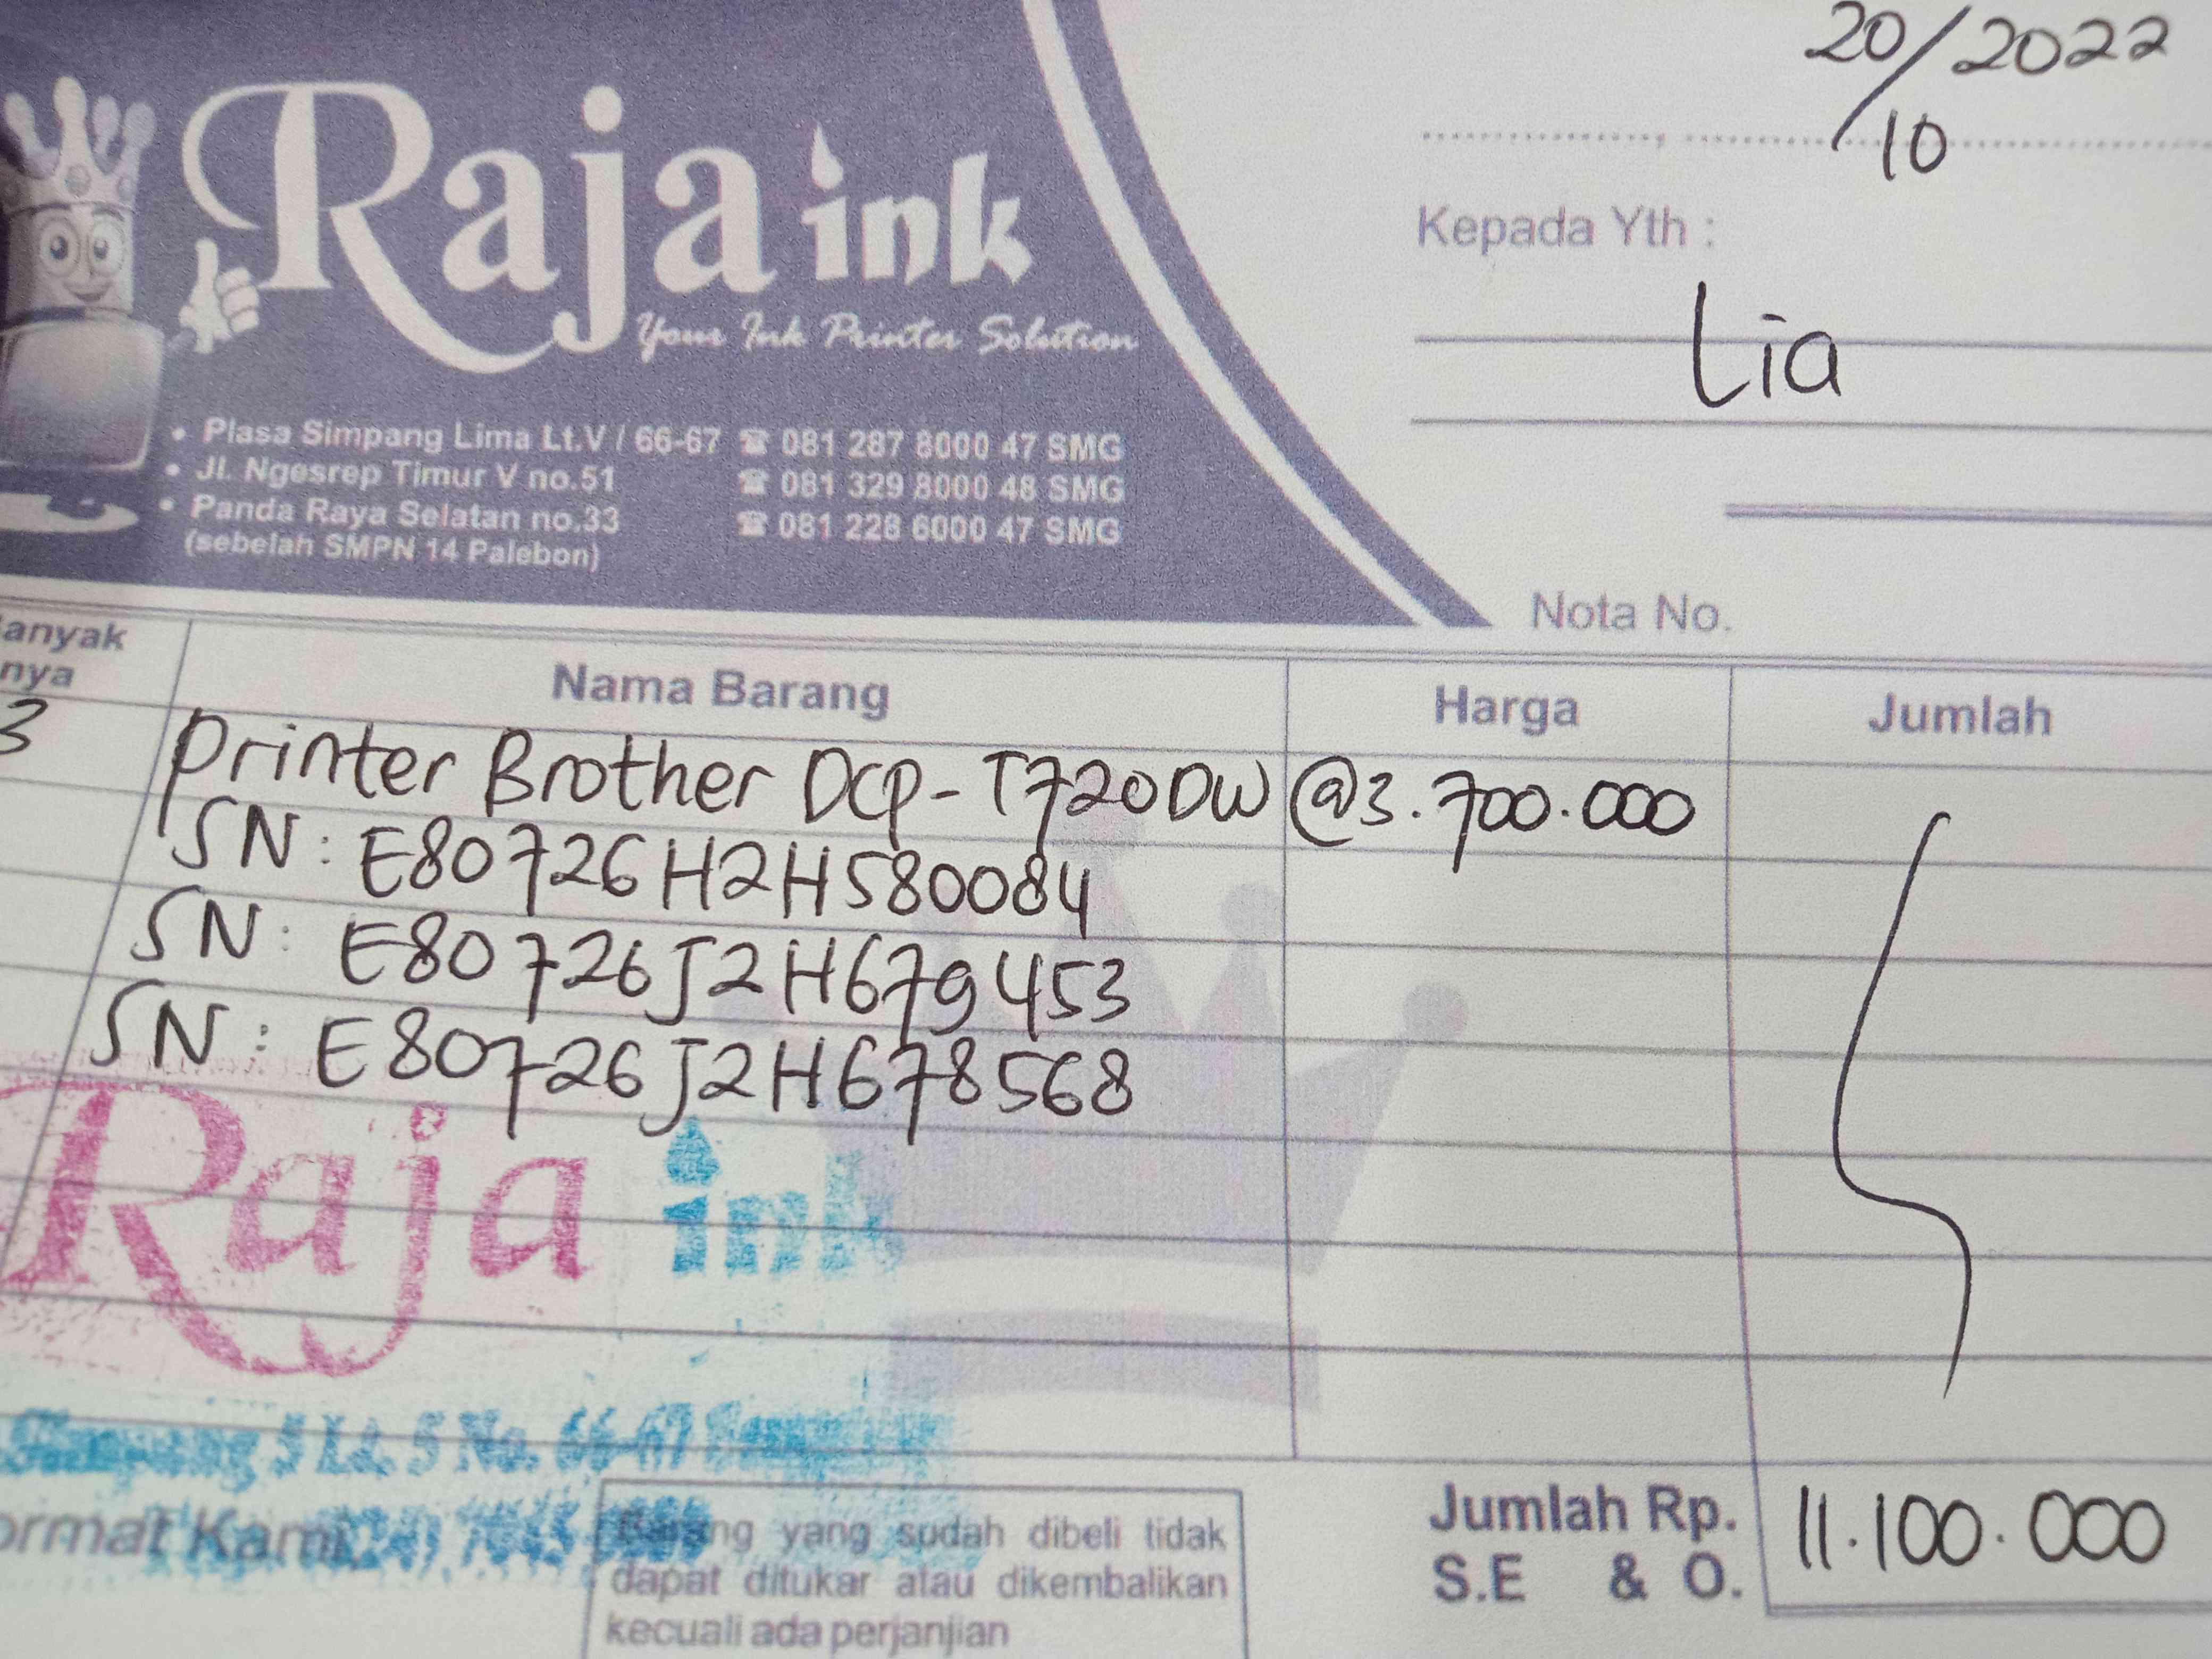 20/10 2022
Raja ink
Your Ink Printer Solution
Kepada Yth :
Lia
• Plasa Simpang Lima Lt.V / 66-67 ☎ 081 287 8000 47 SMG
• Jl. Ngesrep Timur V no.51 ☎ 081 329 8000 48 SMG
• Panda Raya Selatan no.33 ☎ 081 228 6000 47 SMG
(sebelah SMPN 14 Palebon)
Nota No.
anyak
nya
Nama Barang
Harga
Jumlah
3 Printer Brother DCP-T720DW @3.700.000
SN: E80726H2H580084
SN: E80726J2H679453
SN: E80726J2H678568
Raja ink
Simpang 5 Lt. 5 No. 66-67
ormat Kami,
Barang yang sudah dibeli tidak
dapat ditukar atau dikembalikan
kecuali ada perjanjian
Jumlah Rp. 11.100.000
S.E & O.